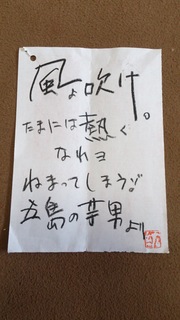 風よ吹け。
たまには熱く
なれヨ
ねまってしまうゾ
五島の芋男より